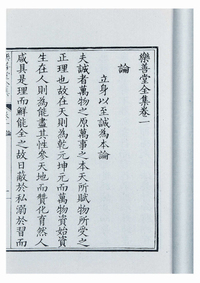 樂善堂全集卷一
論
立身以至誠為本論
夫誠者萬物之原萬事之本天所賦物所受之
正理也故在天則為乾元坤元而萬物資始資
生在人則為能盡其性參天地而贊化育然人
咸具是理而鮮能全之故日蔽於私溺於習而